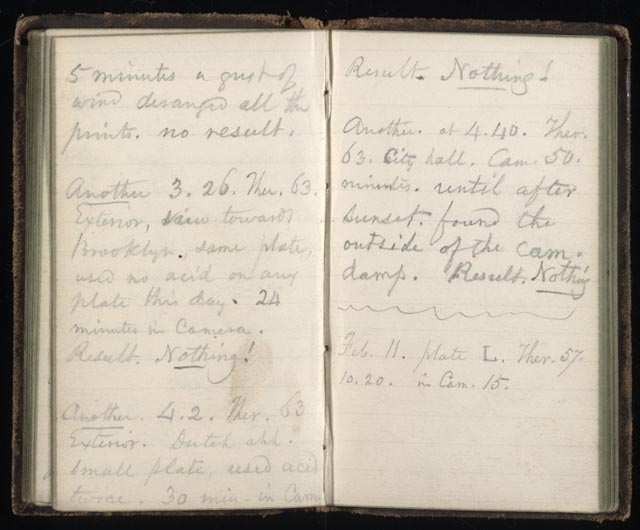 5 minutes a gust of
wind deranged all the
prints. no result.
Another 3.26. Ther. 63.
Exterior, view towards
Brooklyn., same plate,
used no acid on any
plate this day. 24
minutes in Camera.
Result. Nothing!
Another. 4.2. Ther. 63
Exterior. Dutch chh.
small plate, used acid
twice. 30 min. in Cam
Result. Nothing!
Another. at 4.40. Ther.
63. City hall. Cam. 50.
minutes. until after
sunset. found the
outside of the cam.
damp. Result. Nothing
Feb. 11. plate L. Ther. 57.
10.20. in Cam. 15.